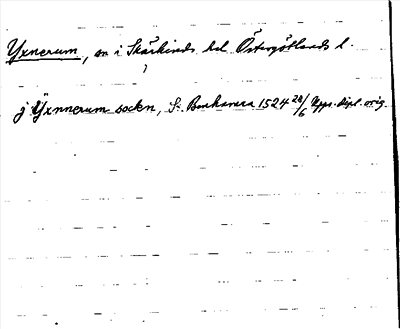 Yxnerum, sn i Skärkinds hd Östergötlands l.
j Yxnnerum sockn, S. Benhamra 1524 28/6 Upps. dipl. orig.